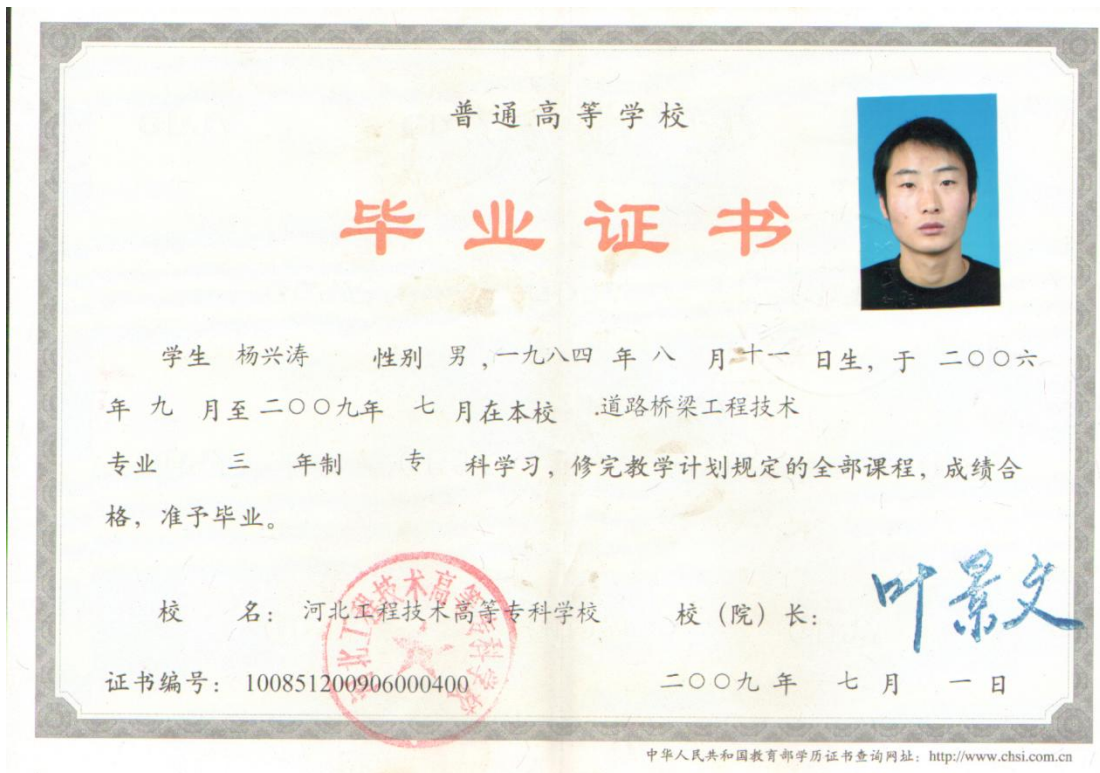 普通高等学校
毕业证书
学生 杨兴涛 性别 男 ,一九八四 年 八 月 十一 日生, 于 二〇〇六
年 九 月至 二〇〇九年 七 月在本校 .道路桥梁工程技术
专业 三 年制 专 科学习, 修完教学计划规定的全部课程, 成绩合
格, 准予毕业。
河北工程技术高等专科学校
校 名: 河北工程技术高等专科学校 校 (院) 长: 叶景文
证书编号: 100851200906000400 二〇〇九 年 七 月 一 日
中华人民共和国教育部学历证书查询网址: http://www.chsi.com.cn